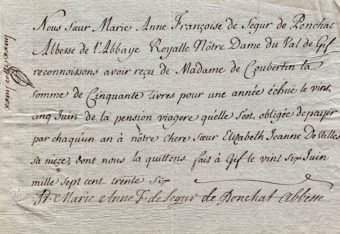 Nous Sœur Marie Anne Françoise de Segur de Ponchat
Abbesse de l'Abbaye Royalle Nôtre Dame du Val de Gif
reconnoissons avoir reçu de Madame de Coubertin la
somme de Cinquante livres pour une année échue le vint
cinq Juin de la pension viagere quelle s'est obligée de payer
par chaquun an à nôtre chere Sœur Elizabeth Jeanne De
sa niece dont nous la quittons fait à Gif le vint six Juin
mille sept cent trente six
Sr Marie Anne F. de Segur de Ponchat Abbesse